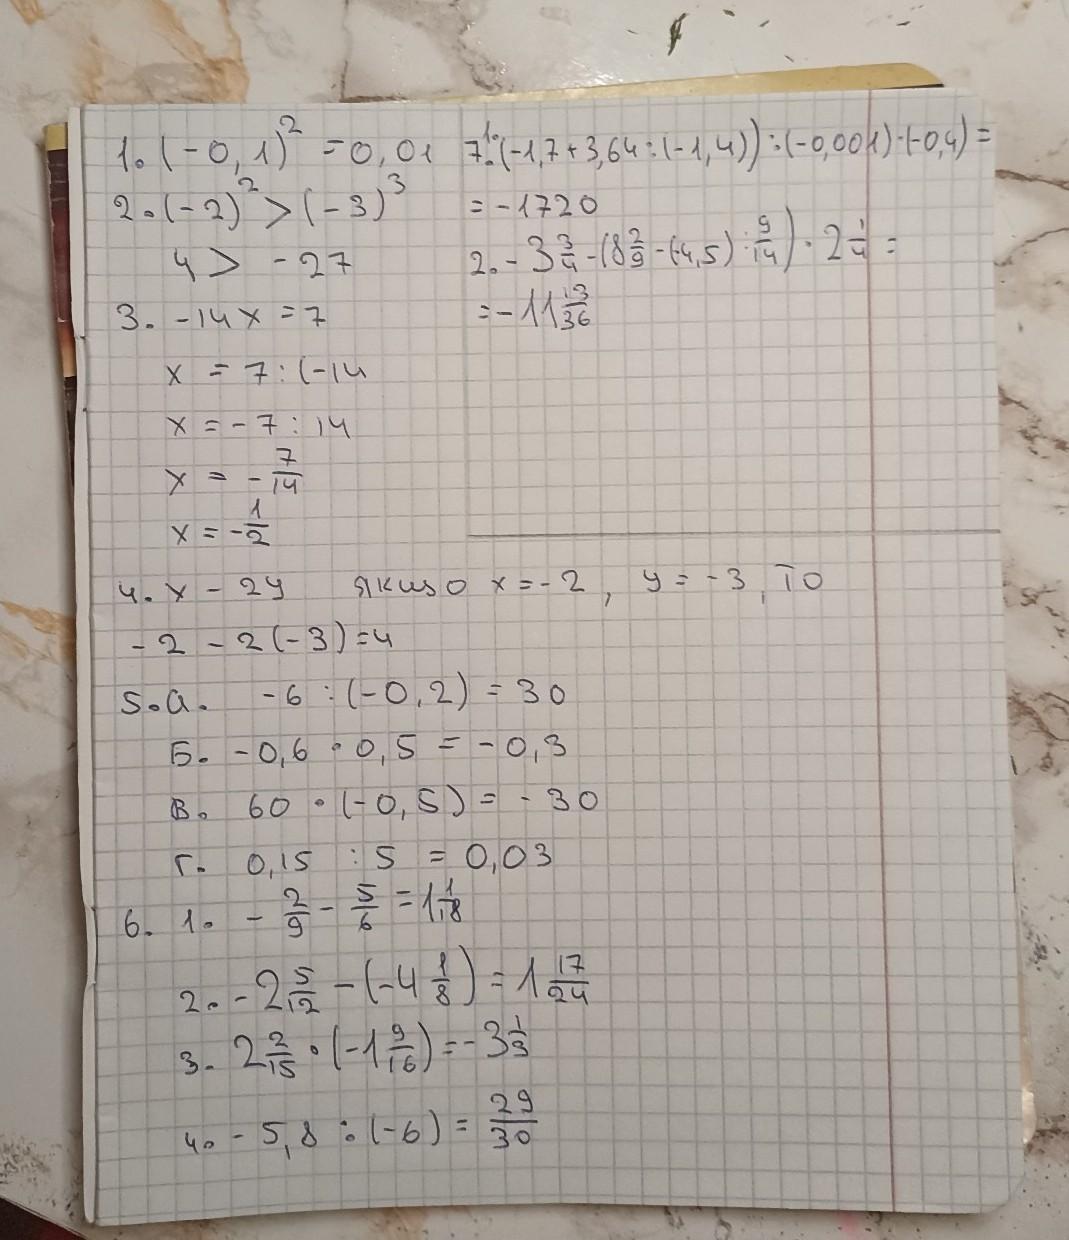 1. (-0,1)² = 0,01
2. (-2)² > (-3)³
4 > -27
3. -14x = 7
x = 7 : (-14
x = -7 : 14
x = -7/14
x = -1/2
7. 1. (-1,7 + 3,64 : (-1,4)) : (-0,001) · (-0,4) =
= -1720
2. -3 3/4 - (8 2/9 - (-4,5) : 9/14) · 2 1/4 =
= -11 13/36
4. x - 2y якщо x = -2, y = -3, то
-2 - 2(-3) = 4
5. а. -6 : (-0,2) = 30
Б. -0,6 · 0,5 = -0,3
В. 60 · (-0,5) = -30
Г. 0,15 : 5 = 0,03
6. 1. -2/9 - 5/6 = 1 1/18
2. -2 5/12 - (-4 1/8) = 1 17/24
3. 2 2/15 · (-1 9/16) = -3 1/3
4. -5,8 : (-6) = 29/30